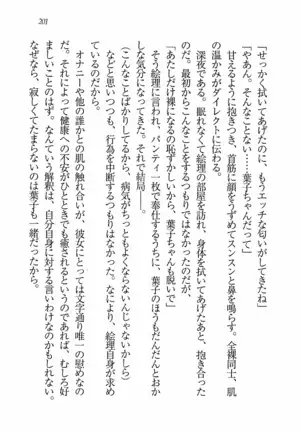 201
「せっかく拭いてあげたのに、もうエッチな匂いがしてきたね」
「やあん。そんなことない……葉子ちゃんだって」
甘えるように抱きつき、首筋に顔をうずめてスンスンと鼻を鳴らす。全裸同士、肌
の温かみがダイレクトに伝わる。
深夜である。眠れなくて絵理の部屋を訪れ、身体を拭いてあげたあと、抱き合った
のだ。最初からこんなことをするつもりではなかったのだが、
「あたしだけ裸になるの恥ずかしいから、葉子ちゃんも脱いで」
そう絵理に言われて、パンティ一枚で奉仕するうちに、葉子のほうもだんだんとおか
しな気分になってきた。それで結局――。
（こんなことばかりしてるから、病気がちっともよくならないんじゃないかしら）
などと思いつつも、行為を中断するつもりはなかった。なにより、絵理自身が求め
ているのだから。
オナニーや他の誰かとの肌の触れ合いが、彼女にとっては文字通り唯一の慰めなの
だ。それによって健康への不安がひとときでも癒されるというのであれば、むしろ好
ましいことのはず。なんていう解釈は、自分自身に対する言いわけなのかもしれない。
なぜなら、寂しくてたまらないのは葉子も一緒だったから。